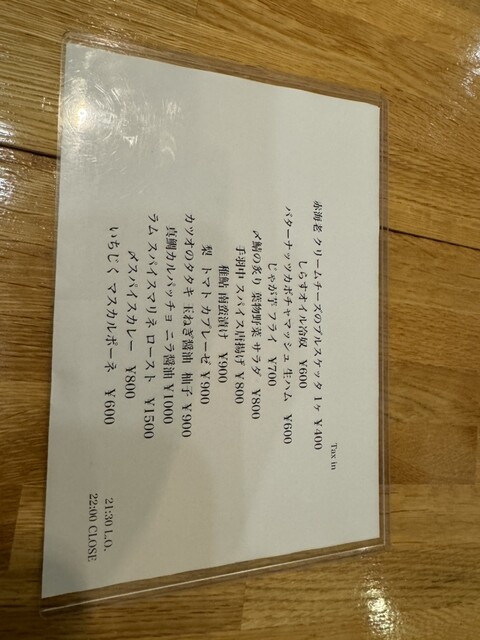 Tax in
赤海老 クリームチーズのブルスケッタ 1ヶ ¥400
しらすオイル冷奴 ¥600
バターナッツカボチャマッシュ 生ハム ¥600
じゃが芋 フライ ¥700
〆鯖の炙り 葉物野菜 サラダ ¥800
手羽中 スパイス唐揚げ ¥800
稚鮎 南蛮漬け ¥900
梨 トマト カプレーゼ ¥900
カツオのタタキ 玉ねぎ醤油 柚子 ¥900
真鯛 カルパッチョ ニラ醤油 ¥1000
ラム スパイスマリネ ロースト ¥1500
〆スパイスカレー ¥800
いちじく マスカルポーネ ¥600
21:30 L.O.
22:00 CLOSE